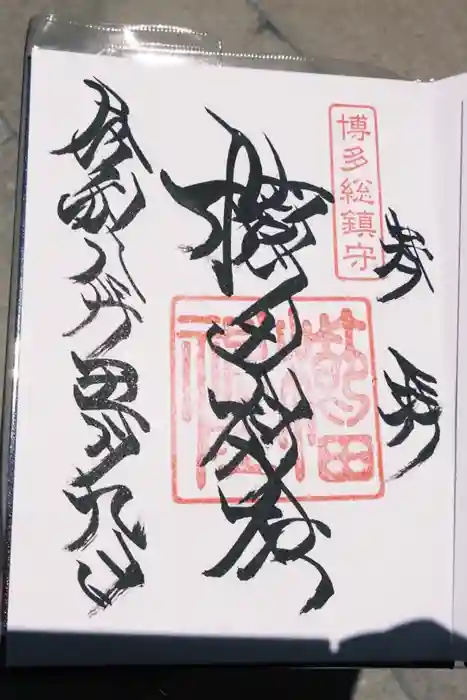 奉拝
博多総鎮守
櫛田神社
櫛田
神社
令和八年四月九日